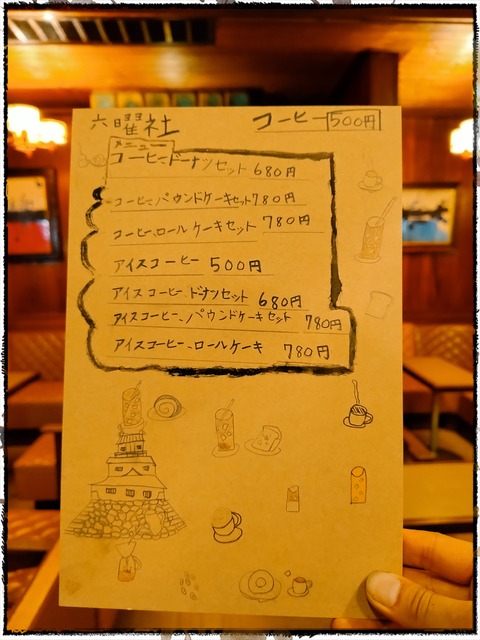 六曜社
コーヒー 500円
メニュー
コーヒー、ドーナツセット 680円
コーヒー、パウンドケーキセット 780円
コーヒー、ロールケーキセット 780円
アイスコーヒー 500円
アイスコーヒー、ドナツセット 680円
アイスコーヒー、パウンドケーキセット 780円
アイスコーヒー、ロールケーキ 780円